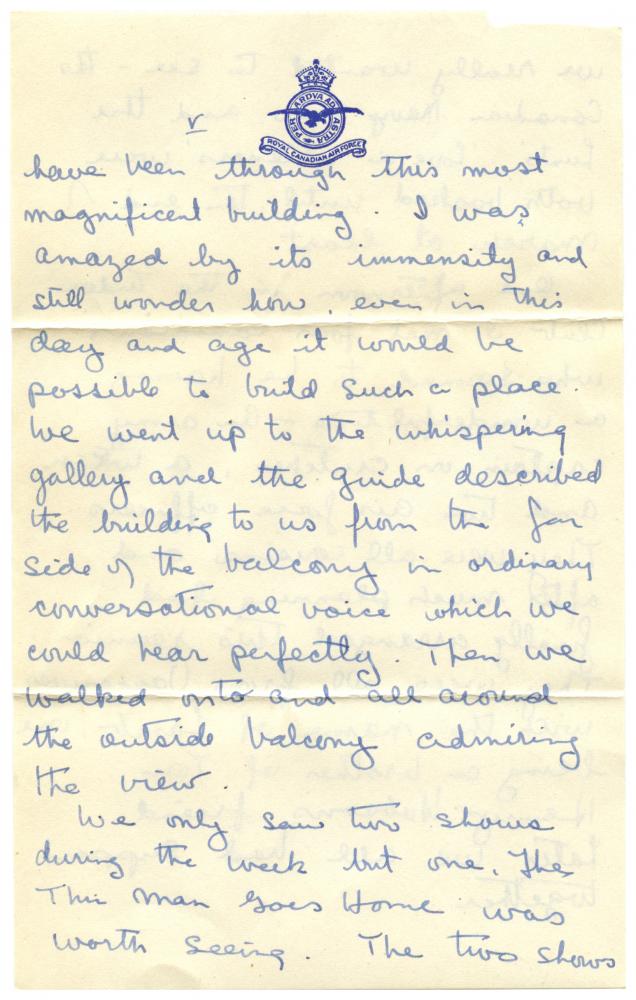 PER ARDVA AD ASTRA
ROYAL CANADIAN AIR FORCE
V
have been through this most
magnificent building. I was
amazed by its immensity and
still wonder how, even in this
day and age it would be
possible to build such a place.
We went up to the whispering
gallery and the guide described
the building to us from the far
side of the balcony in ordinary
conversational voice which we
could hear perfectly. Then we
walked onto and all around
the outside balcony admiring
the view.
We only saw two shows
during the week but one, The
Thin Man Goes Home was
worth seeing. The two shows